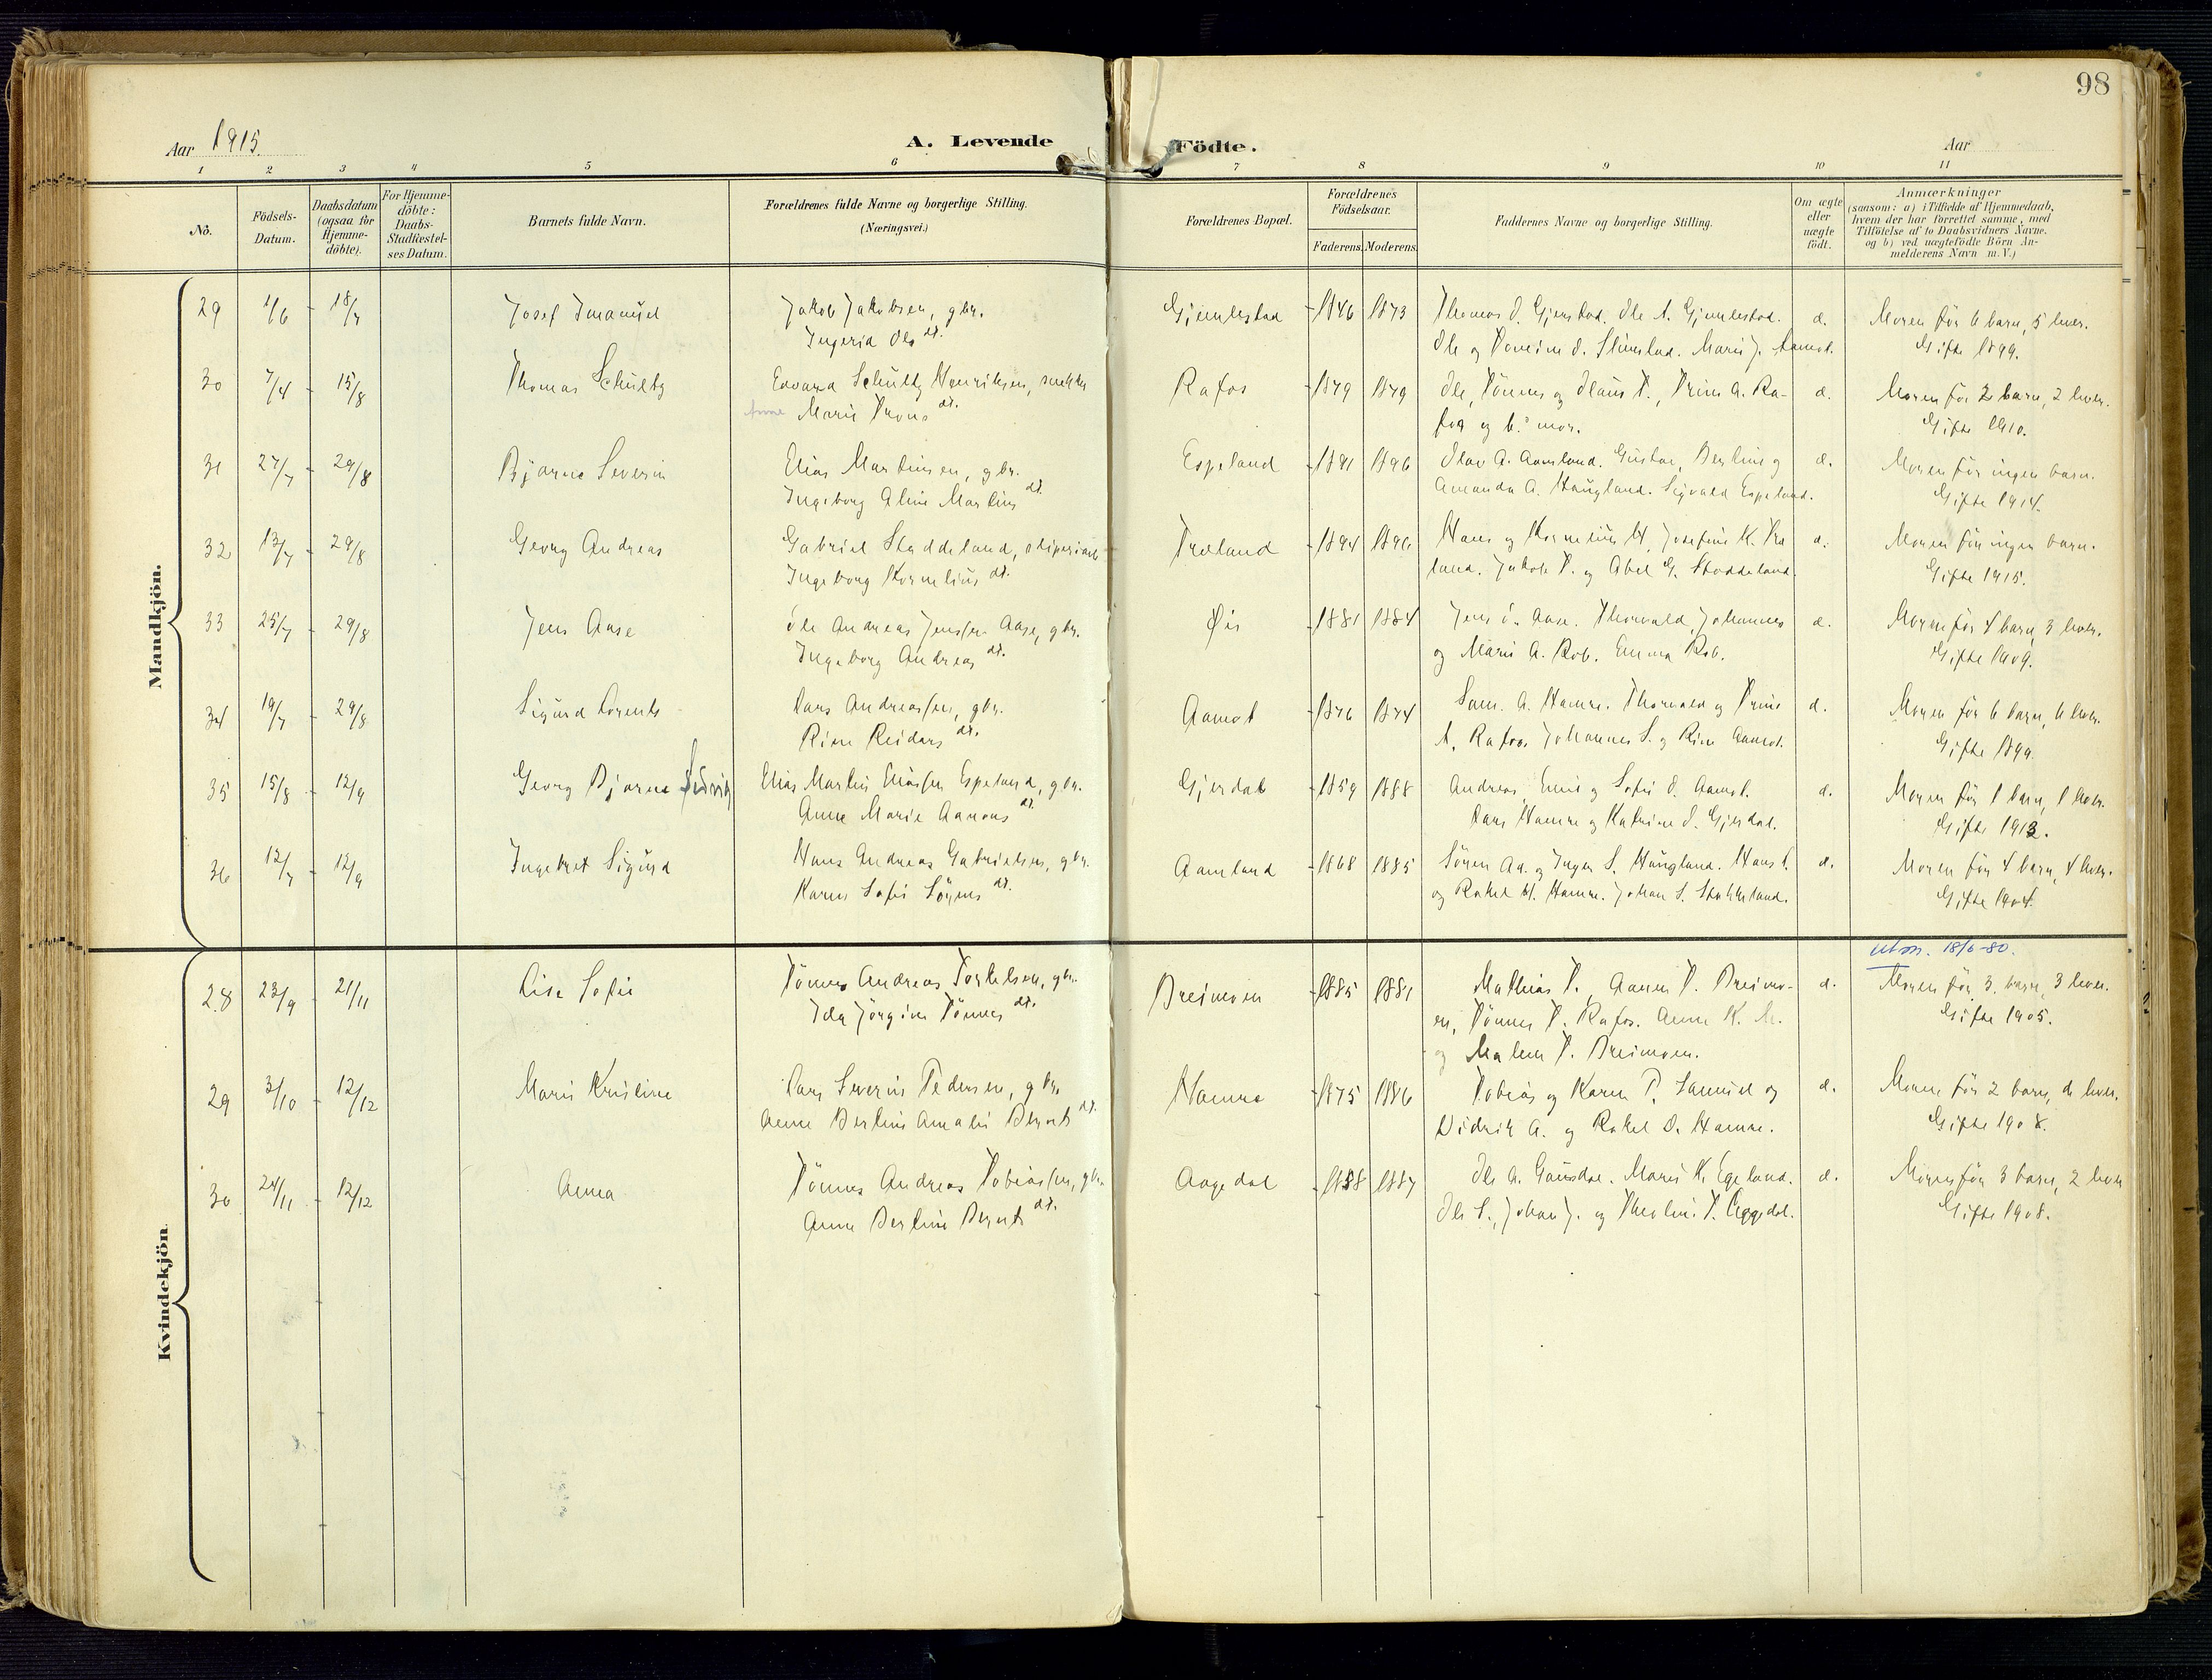 98
Aar 1915.
A. Levende Födte.
Aar
1 2 3 4 5 6 7 8 9 10 11
No.
Födsels-Datum.
Daabsdatum (ogsaa for Hjemme-döbte).
For Hjemme-döbte: Daabs-Stadfæstel-ses Datum.
Barnets fulde Navn.
Forældrenes fulde Navne og borgerlige Stilling.
(Næringsvei.)
Forældrenes Bopæl.
Forældrenes Födselsaar.
Faderens. Moderens.
Faddernes Navne og borgerlige Stilling.
Om ægte eller uægte födt.
Anmærkninger
(saasom: a) i Tilfælde af Hjemmedaab,
hvem der har forrettet samme, med
Tilföielse af to Daabsvidners Navne.
og b) ved uægtefödte Börn An-
melderens Navn m.V.)
Mandkjön.
29 1/6 - 18/7 Josef Imanuel Jakob Jakobsen, gbr. Gjemlestad - 1846 1873 Thomas O. Gjemlestad. Ole A. Gjemlestad. æ. Moren før 6 barn, 5 lever.
Ingerid Ols dt. Ole og O. Marie J. Aamot. Gifte 1899.
30 7/4 - 15/8 Thomas Schultz Edvard Schultz Henriksen, snekker Rafos - 1879 1879 Ole, Tönnes og T., Trine A. Ra- æ. Moren før 2 barn, 2 lever.
Anne Marie Trons dt. fos og b.s mor. Gifte 1910.
31 27/7 - 29/8 Bjarne Severin Elias Martinsen, gbr. Espeland - 1891 1896 Olav A. Aamland. Gustav, Berlin og æ. Moren før ingen barn.
Ingeborg Aline Martins dt. Amanda A. Haugland. Sigvald Espeland. Gifte 1914.
32 13/7 - 29/8 Georg Andreas Gabriel Stoddeland, Træland - 1894 1896 Hans og Kornelius H, Josefine K. Træ æ. Moren før ingen barn.
Ingeborg Kornelius dt. land. Jakob T. og Abel G. Stoddeland. Gifte 1915.
33 25/7 - 29/8 Jens Aase Ole Andreas Jensen Aase, gbr. Øie - 1881 1884 Jens O. Aase. Thorvald, Johannes æ. Moren før 4 barn, 3 lever.
Ingeborg Andreas dt. og Marie A. Rob. Emma Rob. Gifte 1909.
34 19/7 - 29/8 Sigurd Lorents Lars Andreassen, gbr. Aamot - 1876 1874 Sam. A. Hamre. Thorvald og Trine æ. Moren før 6 barn, 6 lever.
Rine Reidars dt. A. Rafos. Johannes S. og Rine Aamot. Gifte 1899.
35 15/8 - 12/9 Georg Bjarne Ludvig Elias Martin Eliassen Espeland, gbr. Gjerdal - 1859 1888 Andreas, Emil og Sofie O. Aamot. æ. Moren før 1 barn, 1 lever.
Anne Marie Aanons dt. Lars Hamre og Katrine O. Gjerdal. Gifte 1913.
36 12/7 - 12/9 Ingebret Sigurd Hans Andreas Gabrielsen, gbr. Aamland - 1868 1885 Sören Aa. og Inger S. Haugland. Hans L. æ. Moren før 4 barn, 4 lever.
Karen Sofie Sörens dt. og Rakel H. Hamre. Johan S. Gifte 1904.
Kvindekjön.
utm. 18/6-80.
28 23/9 - 21/11 Lise Sofie Tönnes Andreas Torkelsen, gbr. Breimoen - 1885 1881 Mathias T., Aanen T. Breimo- æ. Moren før 3 barn, 3 lever.
Ida Jörgine Tönnes dt. en, Tönnes T. Rafos. Anne K. M. Gifte 1905.
og Malen T. Breimoen.
29 3/10 - 12/12 Marie Kristine Lars Severin Pedersen, gbr. Hamre - 1875 1886 Tobias og Karen P. Samuel og æ. Moren før 2 barn, 2 lever.
Anne Berline Amalie Bernts dt. Didrik A. og Rakel O. Hamre. Gifte 1908.
30 24/11 - 12/12 Anna Tönnes Andreas Tobiassen, gbr. Aagedal - 1888 1887 Ole A. Gausdal. Marie K. Egeland. æ. Moren før 3 barn, 2 lever
Anne Berline Bernts dt. Ole S., Johan J. og Theoline T. Aggedal. Gifte 1908.